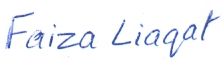 Faiza Liaqat